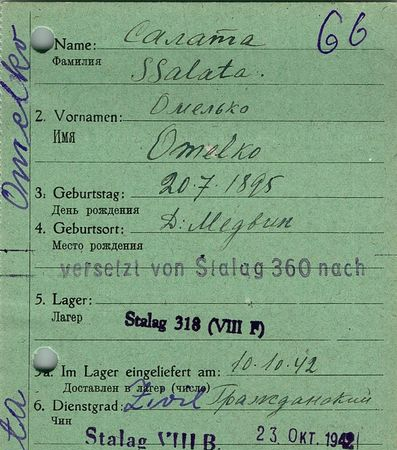 Omelko
ta
66
Name: Салата
Фамилия
SSalata.
2. Vornamen: Омелько
Имя
Omelko
3. Geburtstag: 20.7.1895
День рождения
4. Geburtsort: Д. Медвин
Место рождения
versetzt von Stalag 360 nach
5. Lager:
Лагерь
Stalag 318 (VIII F)
a. Im Lager eingeliefert am: 10.10.42
Доставлен в лагерь (число)
6. Dienstgrad: Zivil Гражданский
Чин
Stalag VIII B. 23. ОКТ. 1942